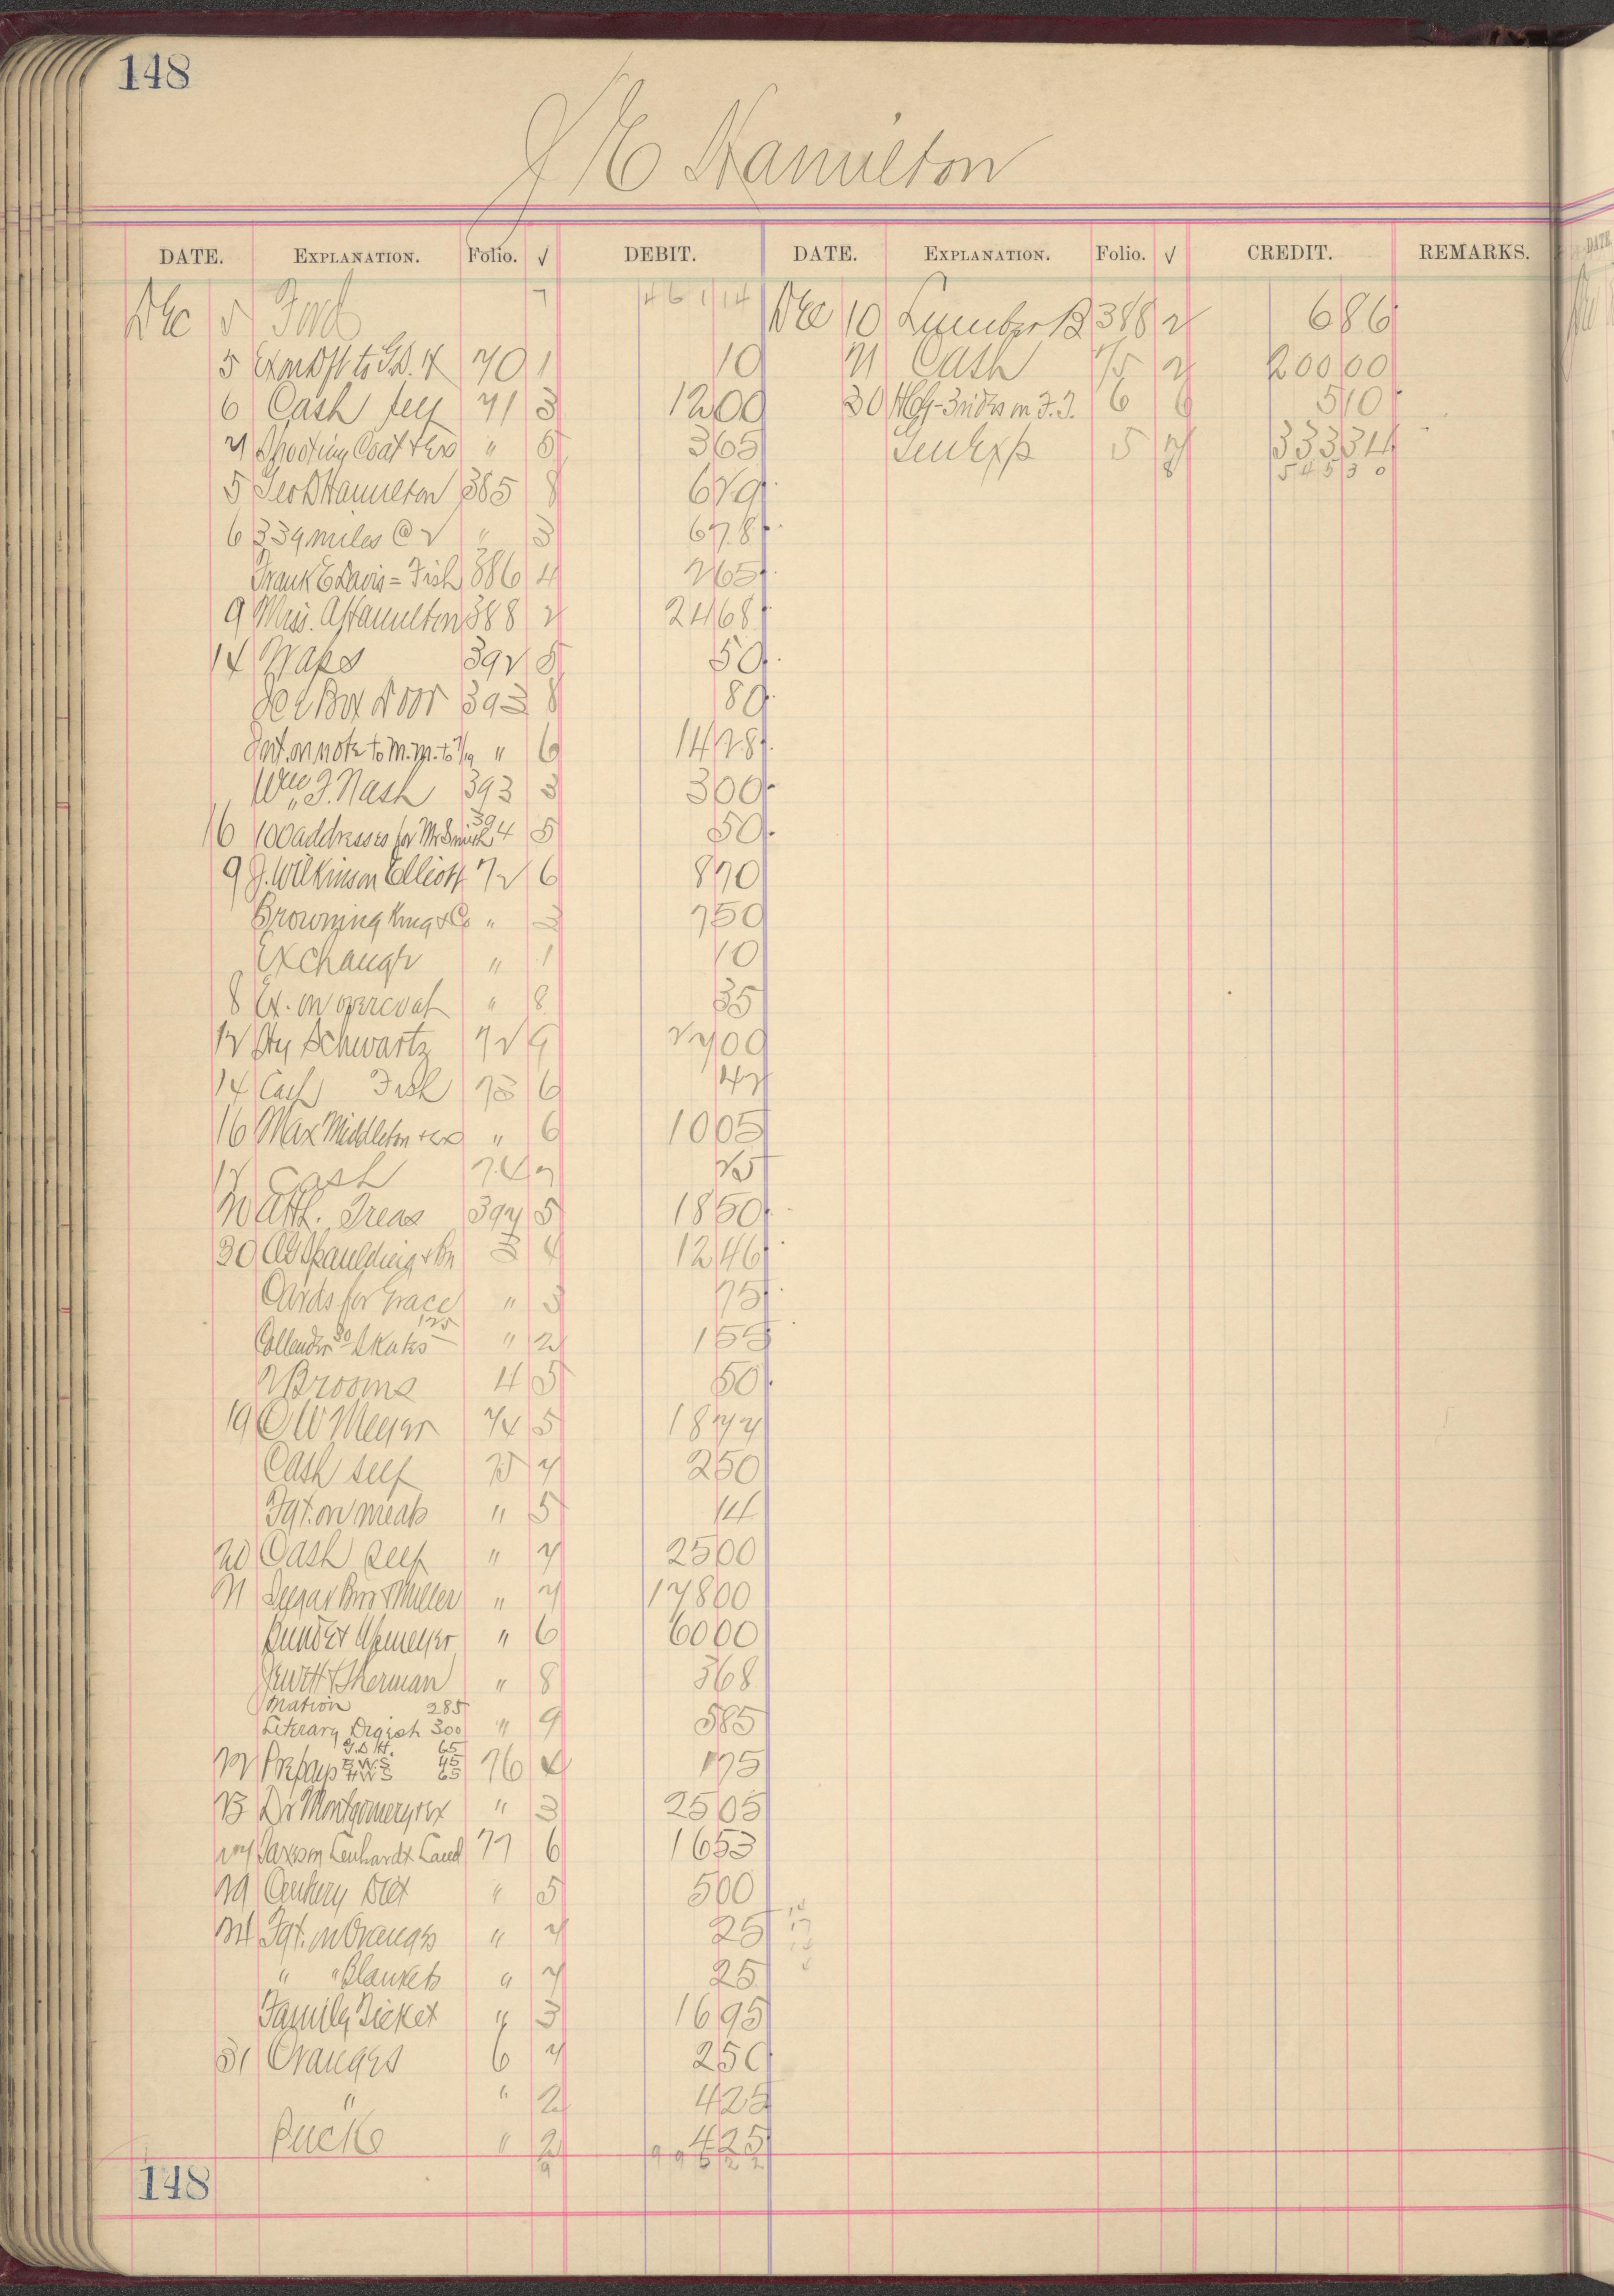 148
J E Hamilton
DATE. EXPLANATION. Folio. √ DEBIT. DATE. EXPLANATION. Folio. √ CREDIT. REMARKS.
Dec 5 Fwd 7 461 14 Dec 10 Lumber B 388 2 6 86
5 Ex on Dft to G.D. H 70 1 10 21 Cash 75 2 200 00
6 Cash self 71 3 12 00 30 HCG-3 rides in F.T. 6 6 5 10
7 Shooting Coat + Ex " 5 3 65 Gen Exp 5 7 333 34
5 Geo D Hamilton 385 8 6 29 8 545 30
6 339 miles @ 2 " 3 6 78
Frank E Davis = Fish 386 4 2 65
9 Miss. A Hamilton 388 2 24 68
14 Naps 392 5 50
Ice Box Door 393 8 80
Int. on note to M.M. to 7/19 " 6 14 28
Wm J. Nash 393 3 3 00
16 100 addresses for Mr Smith 394 5 50
9 J. Wilkinson Elliott 72 6 8 70
Browning King & Co " 3 7 50
Exchange " 1 10
8 Ex. on overcoat " 8 35
12 Hy Schwartz 72 9 27 00
14 Cash Fish 73 6 42
16 Max Middleton + ex " 6 10 05
17 Cash 74 7 25
20 Ath. Treas 397 5 18 50
30 AG Spaulding + Bro 3 4 12 46
Cards for Grace " 3 75
Callender 30 Skates 125 " 2 1 55
2 Brooms 4 5 50
19 O W Meyer 74 5 18 77
Cash self 75 7 2 50
Fgt. on meats " 5 14
20 Cash self " 7 25 00
21 Segar Bros & Miller " 7 178 00
Bunde & Upmeyer " 6 60 00
Jewett & Sherman " 8 3 68
Nation 285
Literary Digest 300 " 9 5 85
G.D H. 65
22 Prepays E.W.S 45 76 4 1 75
H W S 65
23 Dr Montgomery + ex " 3 25 05
27 Taxes on Lenhardt Land 77 6 16 53
29 Century Dict " 5 5 00
24 Fgt. on Oranges " 7 25
" " Blankets " 7 25
Family Ticket " 3 16 95
31 Oranges 6 7 2 50
" " 2 4 25
Pucks " 2 4 25
9 995 22
148